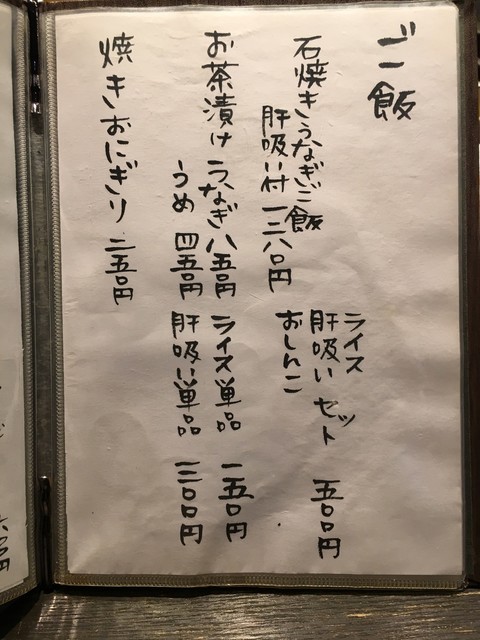 ご飯
石焼きうなぎご飯
肝吸い付 一二八〇円
お茶漬け うなぎ 八五〇円
うめ 四五〇円
焼きおにぎり 二五〇円
ライス
肝吸い セット 五〇〇円
おしんこ
ライス単品 一五〇円
肝吸い単品 三〇〇円